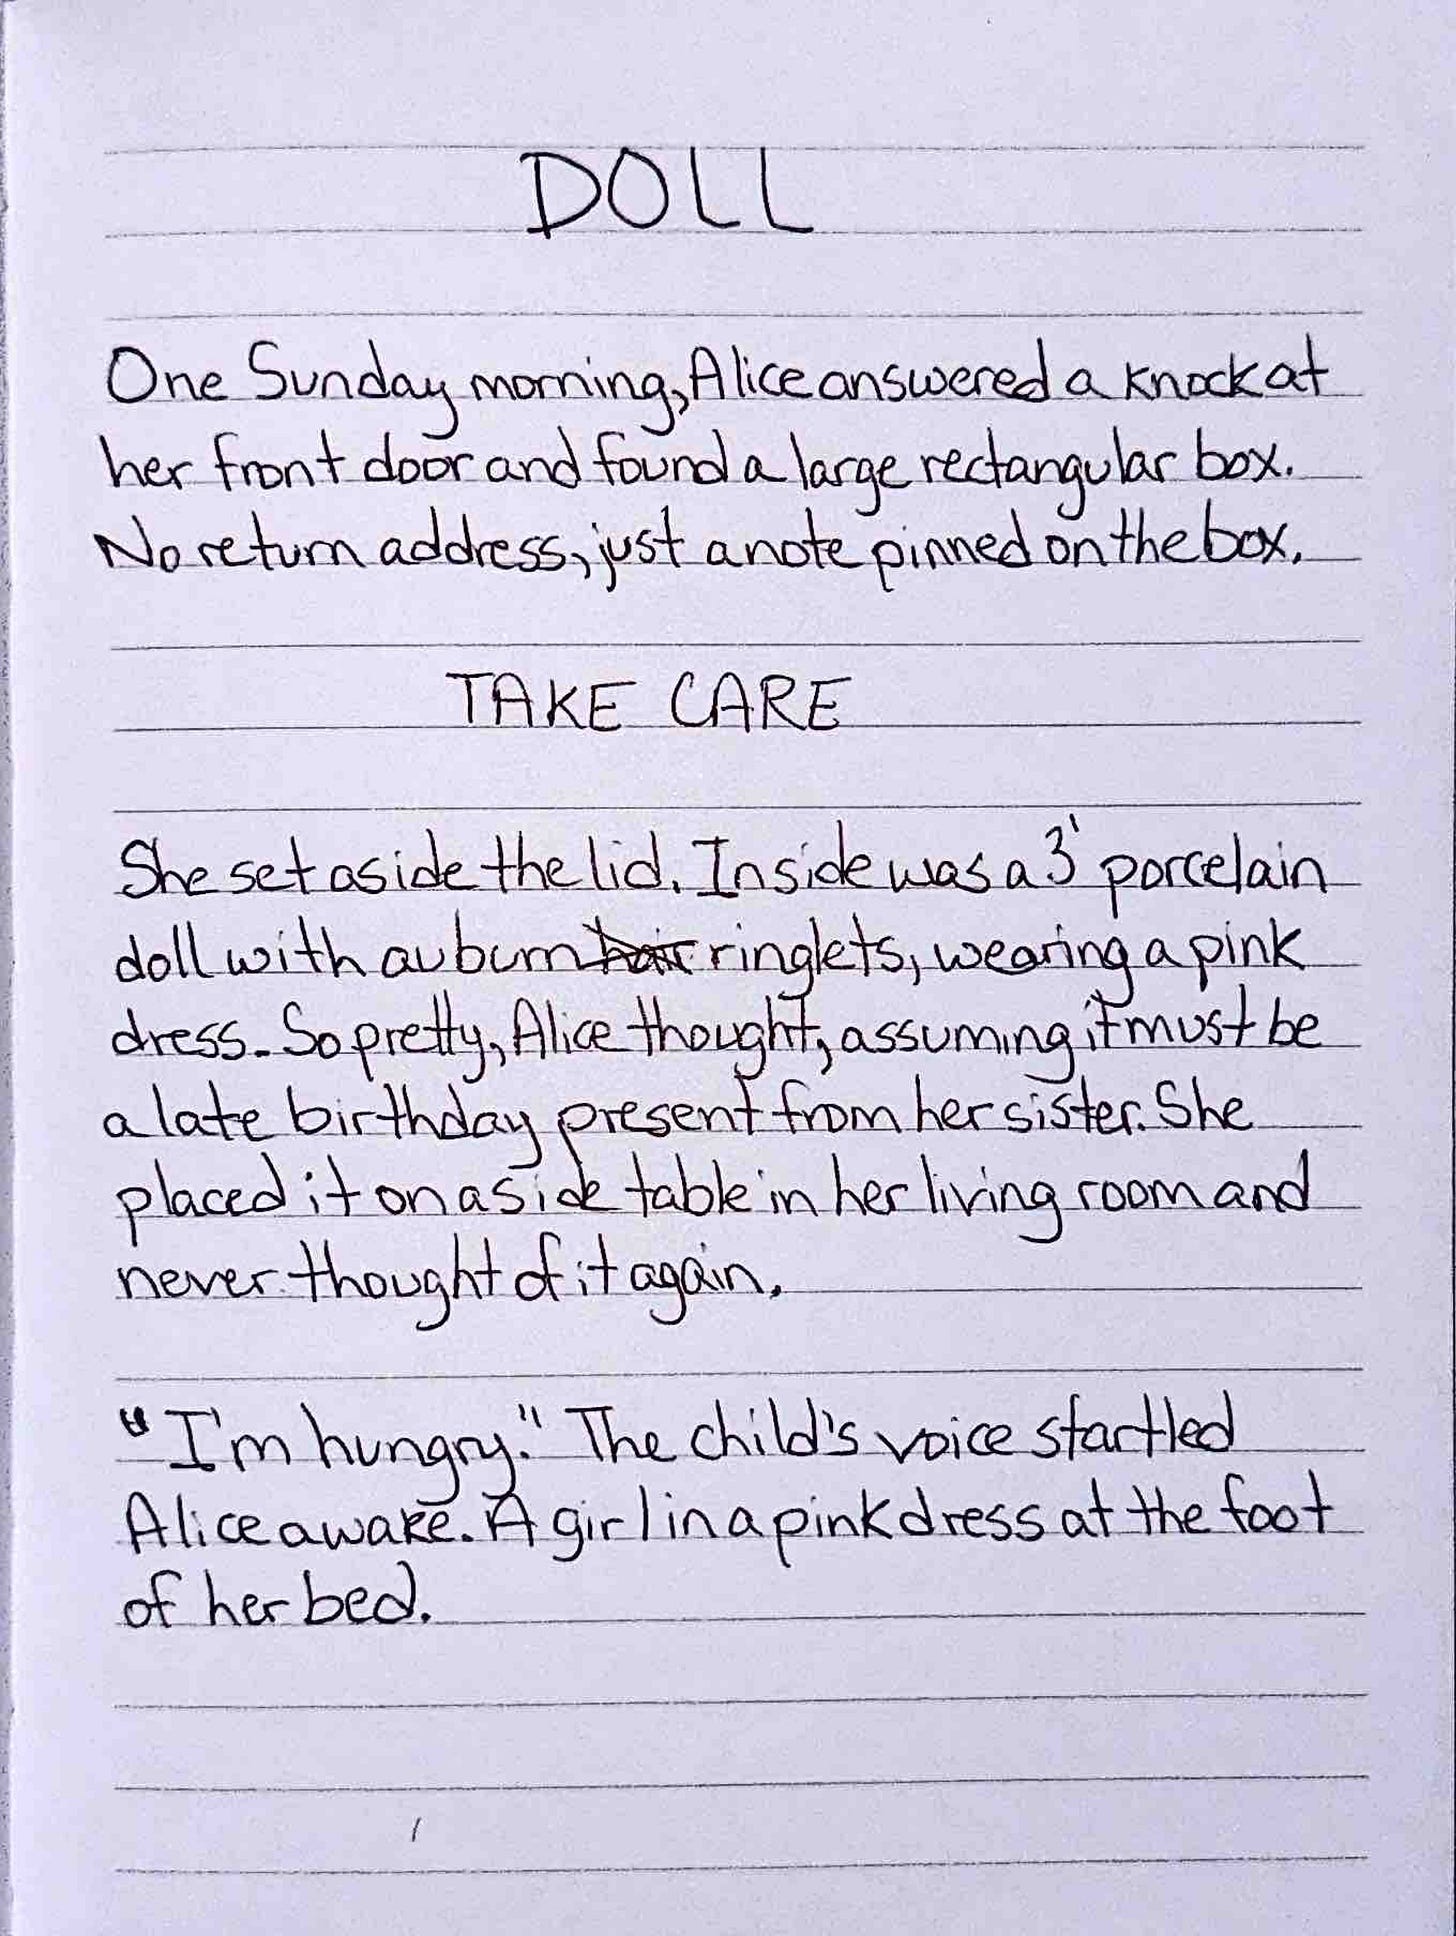 DOLL
One Sunday morning, Alice answered a knock at
her front door and found a large rectangular box.
No return address, just a note pinned on the box.
TAKE CARE
She set aside the lid. Inside was a 3' porcelain
doll with auburn hair ringlets, wearing a pink
dress. So pretty, Alice thought, assuming it must be
a late birthday present from her sister. She
placed it on a side table in her living room and
never thought of it again.
"I'm hungry." The child's voice startled
Alice awake. A girl in a pink dress at the foot
of her bed.